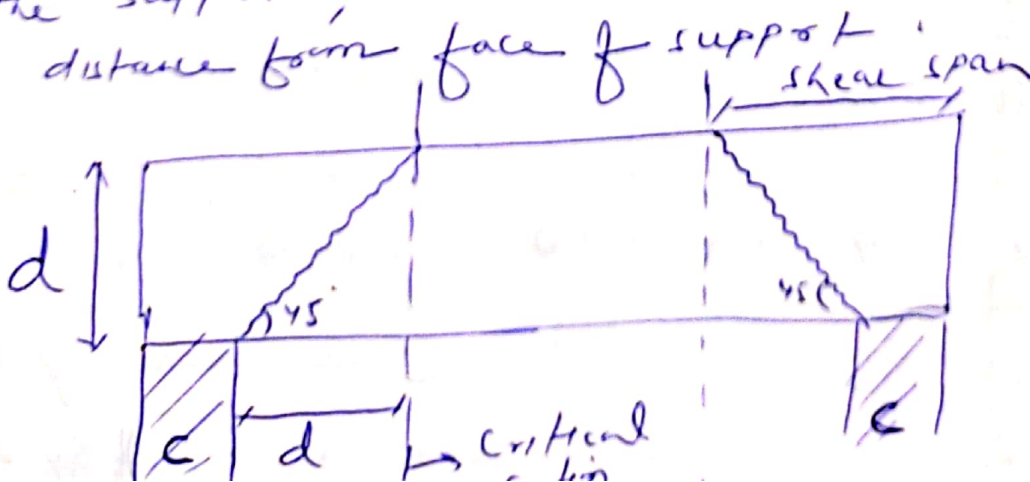 the supp
distance from face of support.
shear span
d
45
45
C
d
C
Critical